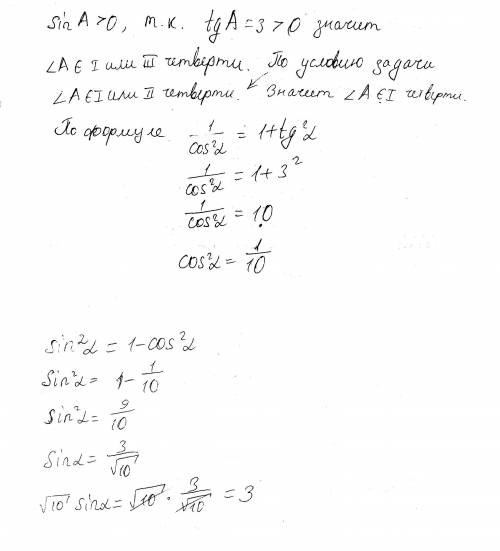 sin A > 0, т.к. tg A = 3 > 0 значит
∠A ∈ I или III четверти. По условию задачи
∠A ∈ I или II четверти. Значит ∠A ∈ I четверти.
По формуле 1/cos²α = 1+tg²α
1/cos²α = 1+3²
1/cos²α = 10
cos²α = 1/10
sin²α = 1-cos²α
sin²α = 1-1/10
sin²α = 9/10
sinα = 3/√10
√10 sinα = √10 · 3/√10 = 3